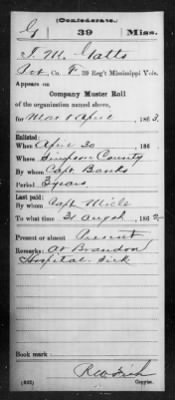 (Confederate.)
G 39 Miss.
T. M. Gatts
Pvt, Co. F, 39 Reg't Mississippi Vols.
Appears on
Company Muster Roll
of the organization named above,
for Mar & April, 1863.
Enlisted:
When April 30, 186
Where Simpson County
By whom Capt Banks
Period 3 years
Last paid:
By whom Capt
To what time 31 Augst, 1862
Present or absent Present
Remarks: At Brandon
Hospital. Sick
Book mark:
(642) Copyist.